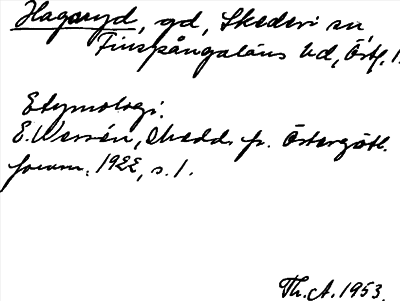 Hagaryd, gd, Skedevi sn,
Finspångaläns hd, Östf. 1.
Etymologi.
E. Wessén, Medd. fr. Östergötl.
fornm. 1922, s. 1.
Th. A. 1953.